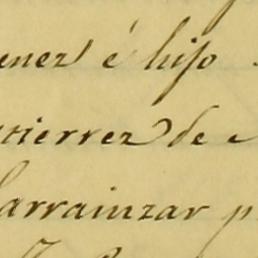 enez é hijo
utierrez de
Larrainzar p